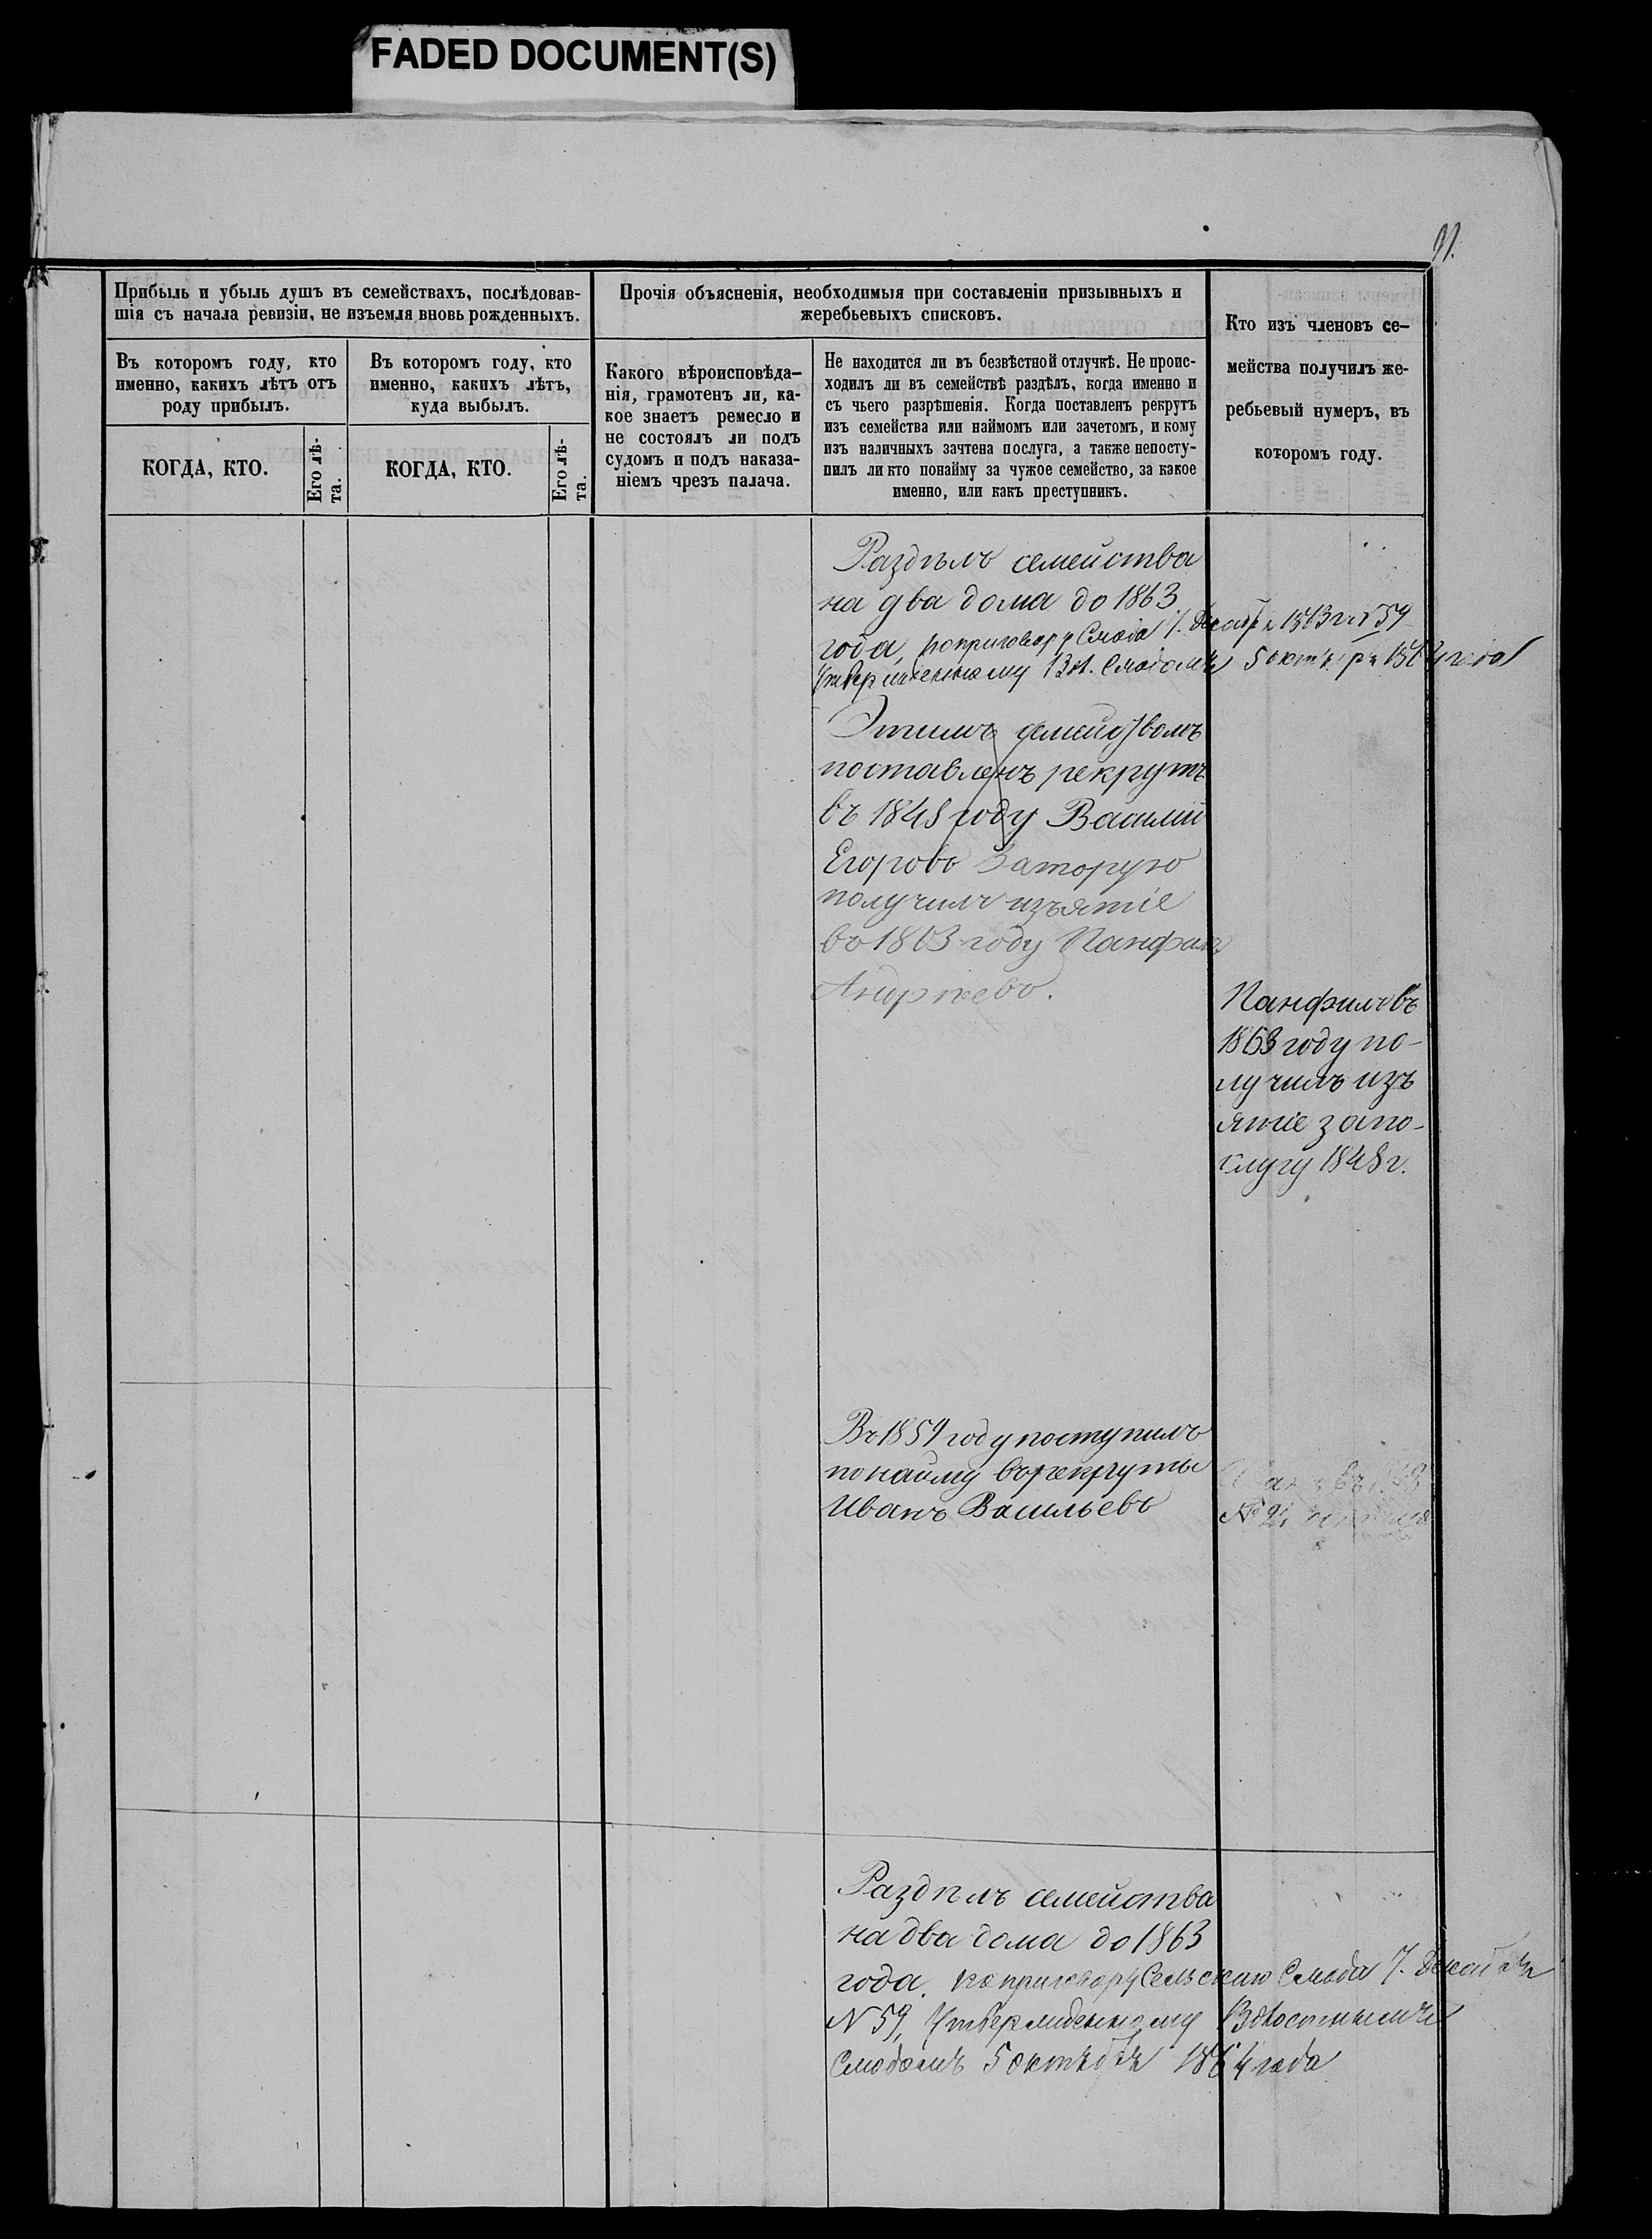 FADED DOCUMENT(S)
91.
Прибыль и убыль душъ въ семействахъ, послѣдовав-
шія съ начала ревизіи, не изъемля вновь рожденныхъ.
Въ которомъ году, кто
именно, какихъ лѣтъ отъ
роду прибылъ.
КОГДА, КТО.
Его лѣ-
та.
Въ которомъ году, кто
именно, какихъ лѣтъ,
куда выбылъ.
КОГДА, КТО.
Его лѣ-
та.
Прочія объясненія, необходимыя при составленіи призывныхъ и
жеребьевыхъ списковъ.
Какого вѣроисповѣда-
нія, грамотенъ ли, ка-
кое знаетъ ремесло и
не состоялъ ли подъ
судомъ и подъ наказа-
ніемъ чрезъ палача.
Не находится ли въ безвѣстной отлучкѣ. Не проис-
ходилъ ли въ семействѣ раздѣлъ, когда именно и
съ чьего разрѣшенія. Когда поставленъ рекрутъ
изъ семейства или наймомъ или зачетомъ, и кому
изъ наличныхъ зачтена послуга, а также непосту-
пилъ ли кто понайму за чужое семейство, за какое
именно, или какъ преступникъ.
Кто изъ членовъ се-
мейства получилъ же-
ребьевый нумеръ, въ
которомъ году.
Раздѣлъ семейства
на два дома до 1863
года, по приговору Схода 7. Декабря 1863 г.
Утвержденному Вол. Сходомъ 5 октября 1864 года
Этимъ семействомъ
поставленъ рекрутъ
въ 1848 году Василій
Егоровъ Заторую
получилъ изъятіе
въ 1863 году Панфилъ
Андрѣевъ.
Панфилъ въ
1863 году по-
лучилъ изъ
ятіе за по-
слугу 1848 г.
Въ 1859 году поступилъ
по найму въ рекруты
Иванъ Васильевъ
№
Раздѣлъ семейства
на два дома до 1863
года. по приговору Сельскаго Схода 7. Декабря
N 59, Утвержденному Волостнымъ
Сходомъ 5 октября 1864 года